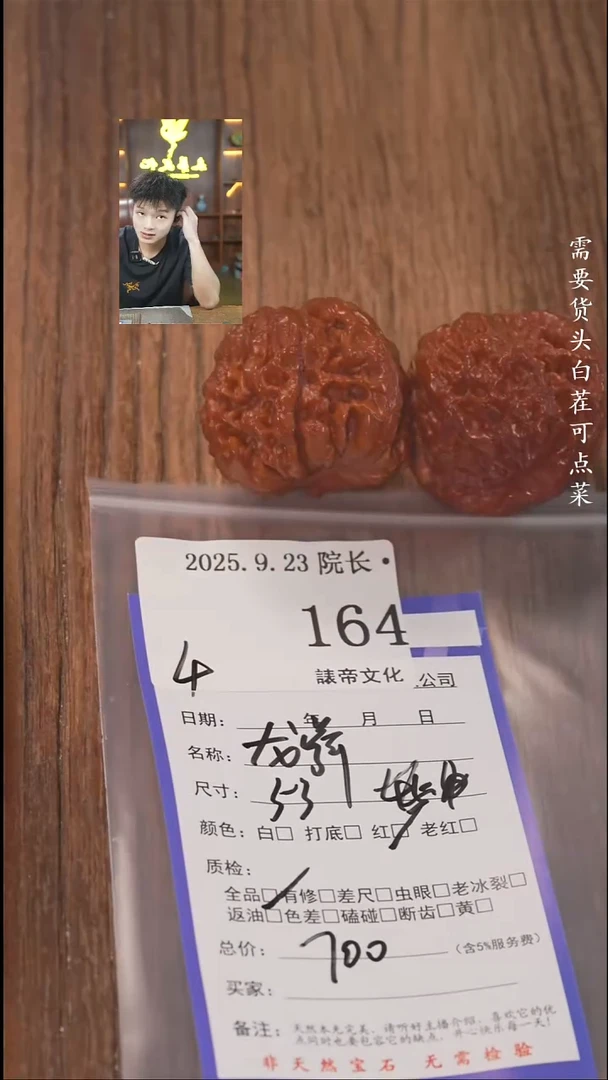 需要货头白茬可点菜
2025.9.23 院长·
164
4
裱帝文化 公司
日期: 年 月 日
名称:
尺寸: 53
颜色: 白□ 打底□ 红□ 老红□
质检:
全品□有修□差尺□虫眼□老冰裂□
返油□色差□磕碰□断齿□黄□
总价: 700 (含5%服务费)
买家:
备注: 天然本无完美, 请听好主播介绍, 喜欢它的优
点同时也要包容它的缺点, 开心快乐每一天!
非天然宝石 无需检验